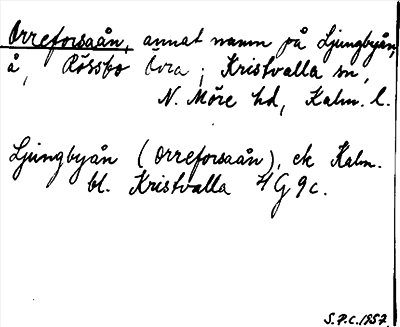 Orreforsaån, annat namn på Ljungbyån,
å, Rössbo Övra; Kristvalla sn,
N. Möre hd, Kalm. l.
Ljungbyån (Orreforsaån), ek Kalm.
bl. Kristvalla 4G 9c.
S.P.C. 1957.